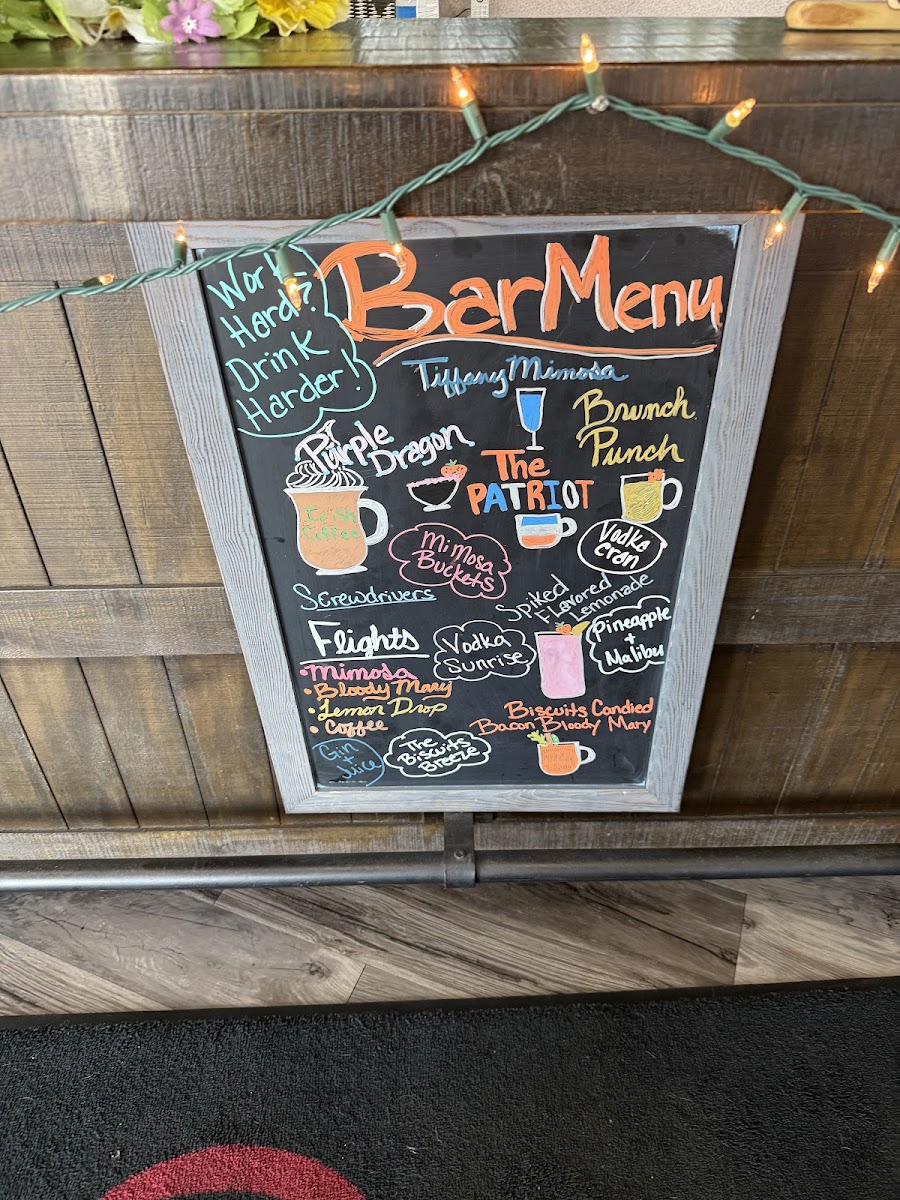 Work
Hard?
Drink
Harder!
Bar Menu
Tiffany Mimosa
Brunch
Punch
Purple
Dragon
The
PATRIOT
Irish
Coffee
Mimosa
Buckets
Vodka
Cran
Screwdrivers
Spiked
Flavored
Lemonade
Flights
• Mimosa
• Bloody Mary
• Lemon Drop
• Coffee
Vodka
Sunrise
Pineapple
+
Malibu
Biscuits Candied
Bacon Bloody Mary
Gin
+
Juice
The
Biscuits
Breeze